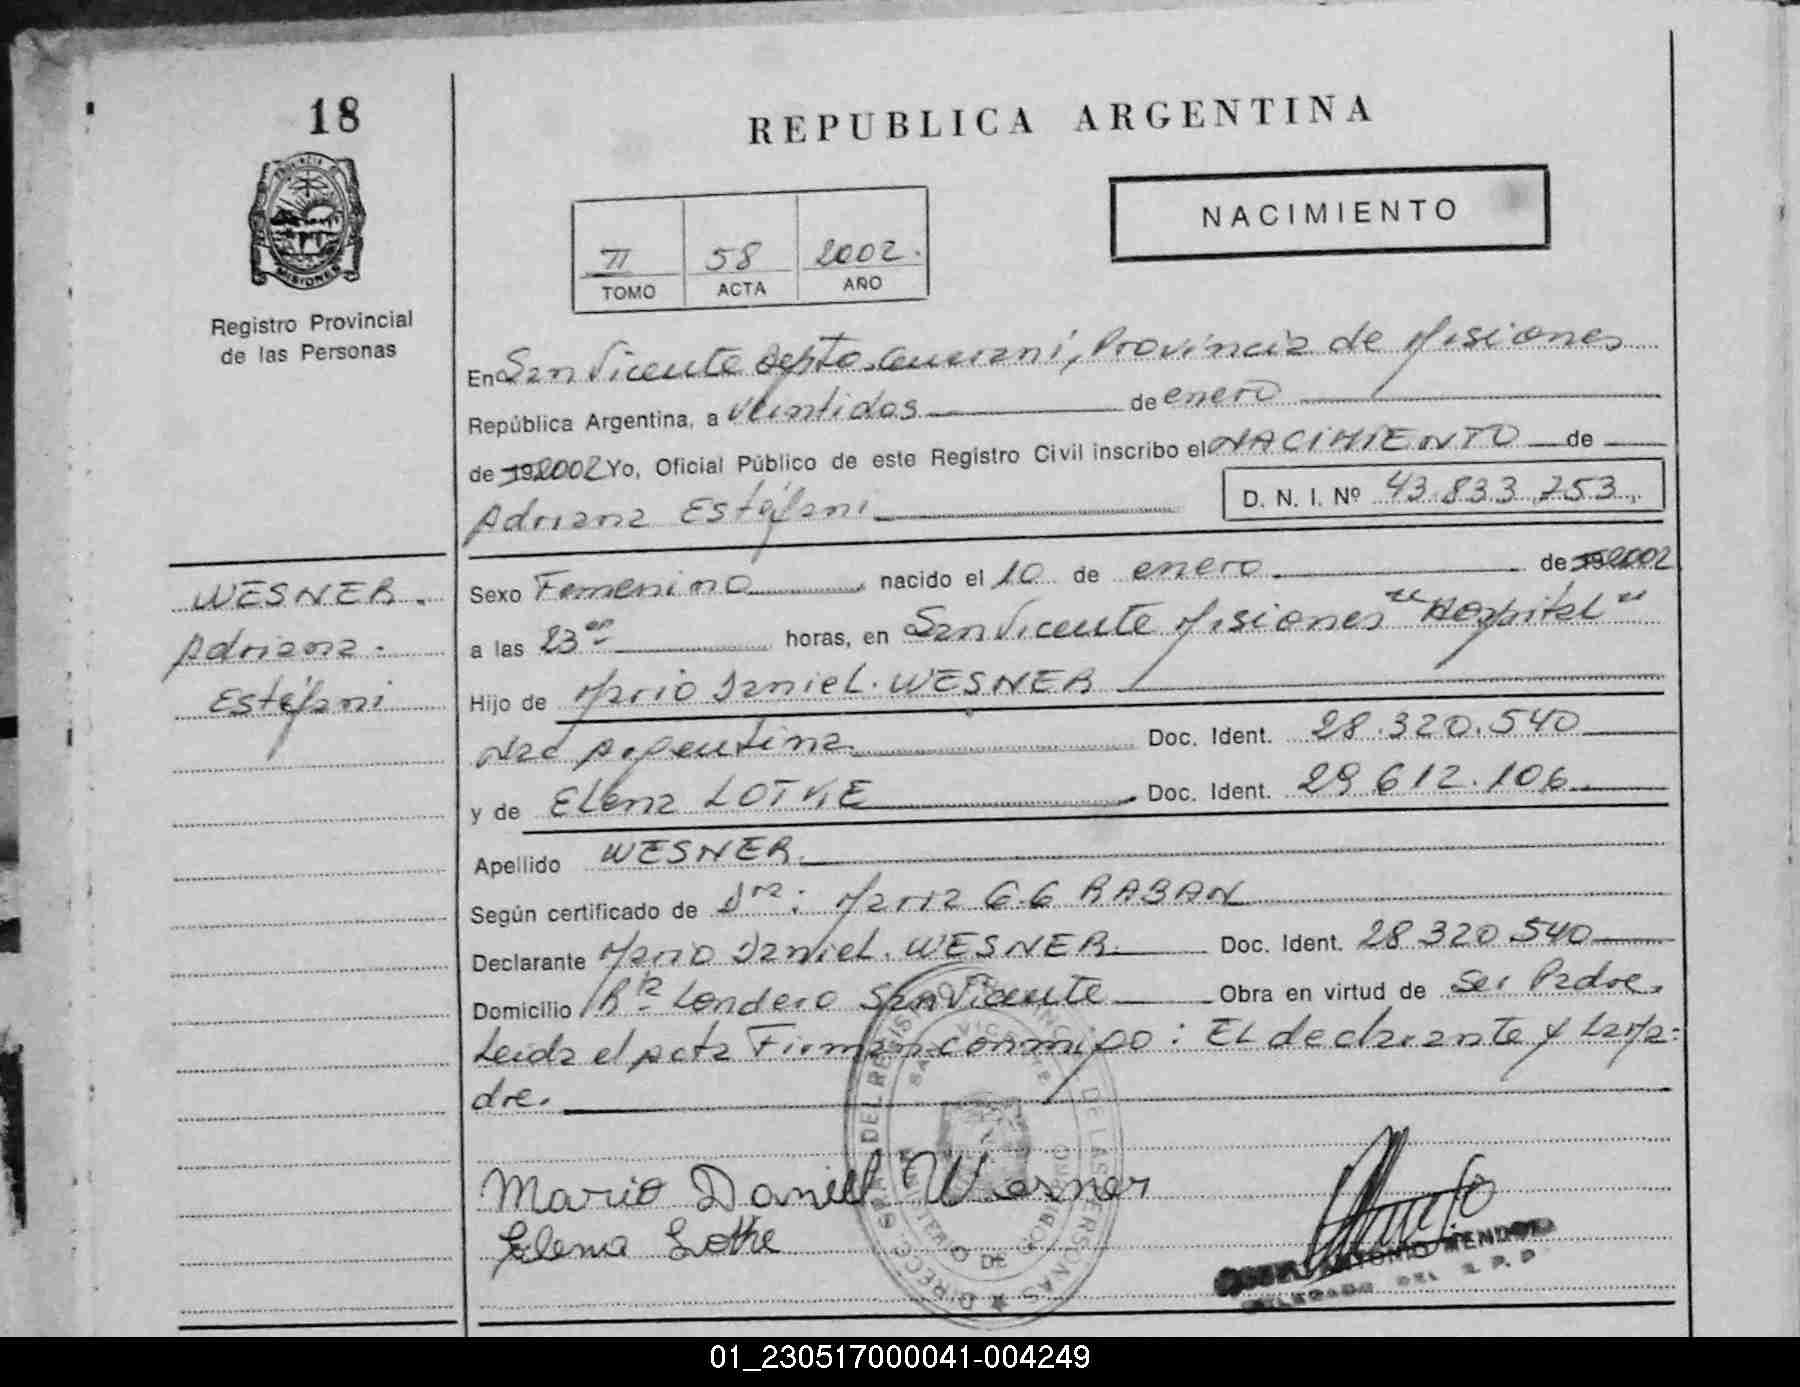 18
PROVINCIA DE
MISIONES
Registro Provincial
de las Personas
REPUBLICA ARGENTINA
NACIMIENTO
II 58 2002.
TOMO ACTA AÑO
En San Vicente Depto. Guaraní, Provincia de Misiones
República Argentina, a veintidos de enero
de 192002 Yo, Oficial Público de este Registro Civil inscribo el NACIMIENTO de
Adriana Estéfani D. N. I. Nº 43.833.753.
WESNER.
Adriana.
Estéfani
Sexo Femenino, nacido el 10 de enero de 192002
a las 23 horas, en San Vicente Misiones "Hospital"
Hijo de Mario Daniel. WESNER
Nac Argentina Doc. Ident. 28.320.540
y de Elena LOTKE Doc. Ident. 29.612.106
Apellido WESNER.
Según certificado de Dra: Maria G. G RABAN
Declarante Mario Daniel. WESNER. Doc. Ident. 28.320.540
Domicilio Bº Londero San Vicente Obra en virtud de Ser Padre.
Leida el acta Firman conmigo: El declarante y La Ma=
dre.
Mario Daniel Wesner
Elena Lotke
SAN VICENTE
DE LAS PERSONAS
ANTONIO MENDOZA
DELEGADO DEL R. P. P
01_230517000041-004249